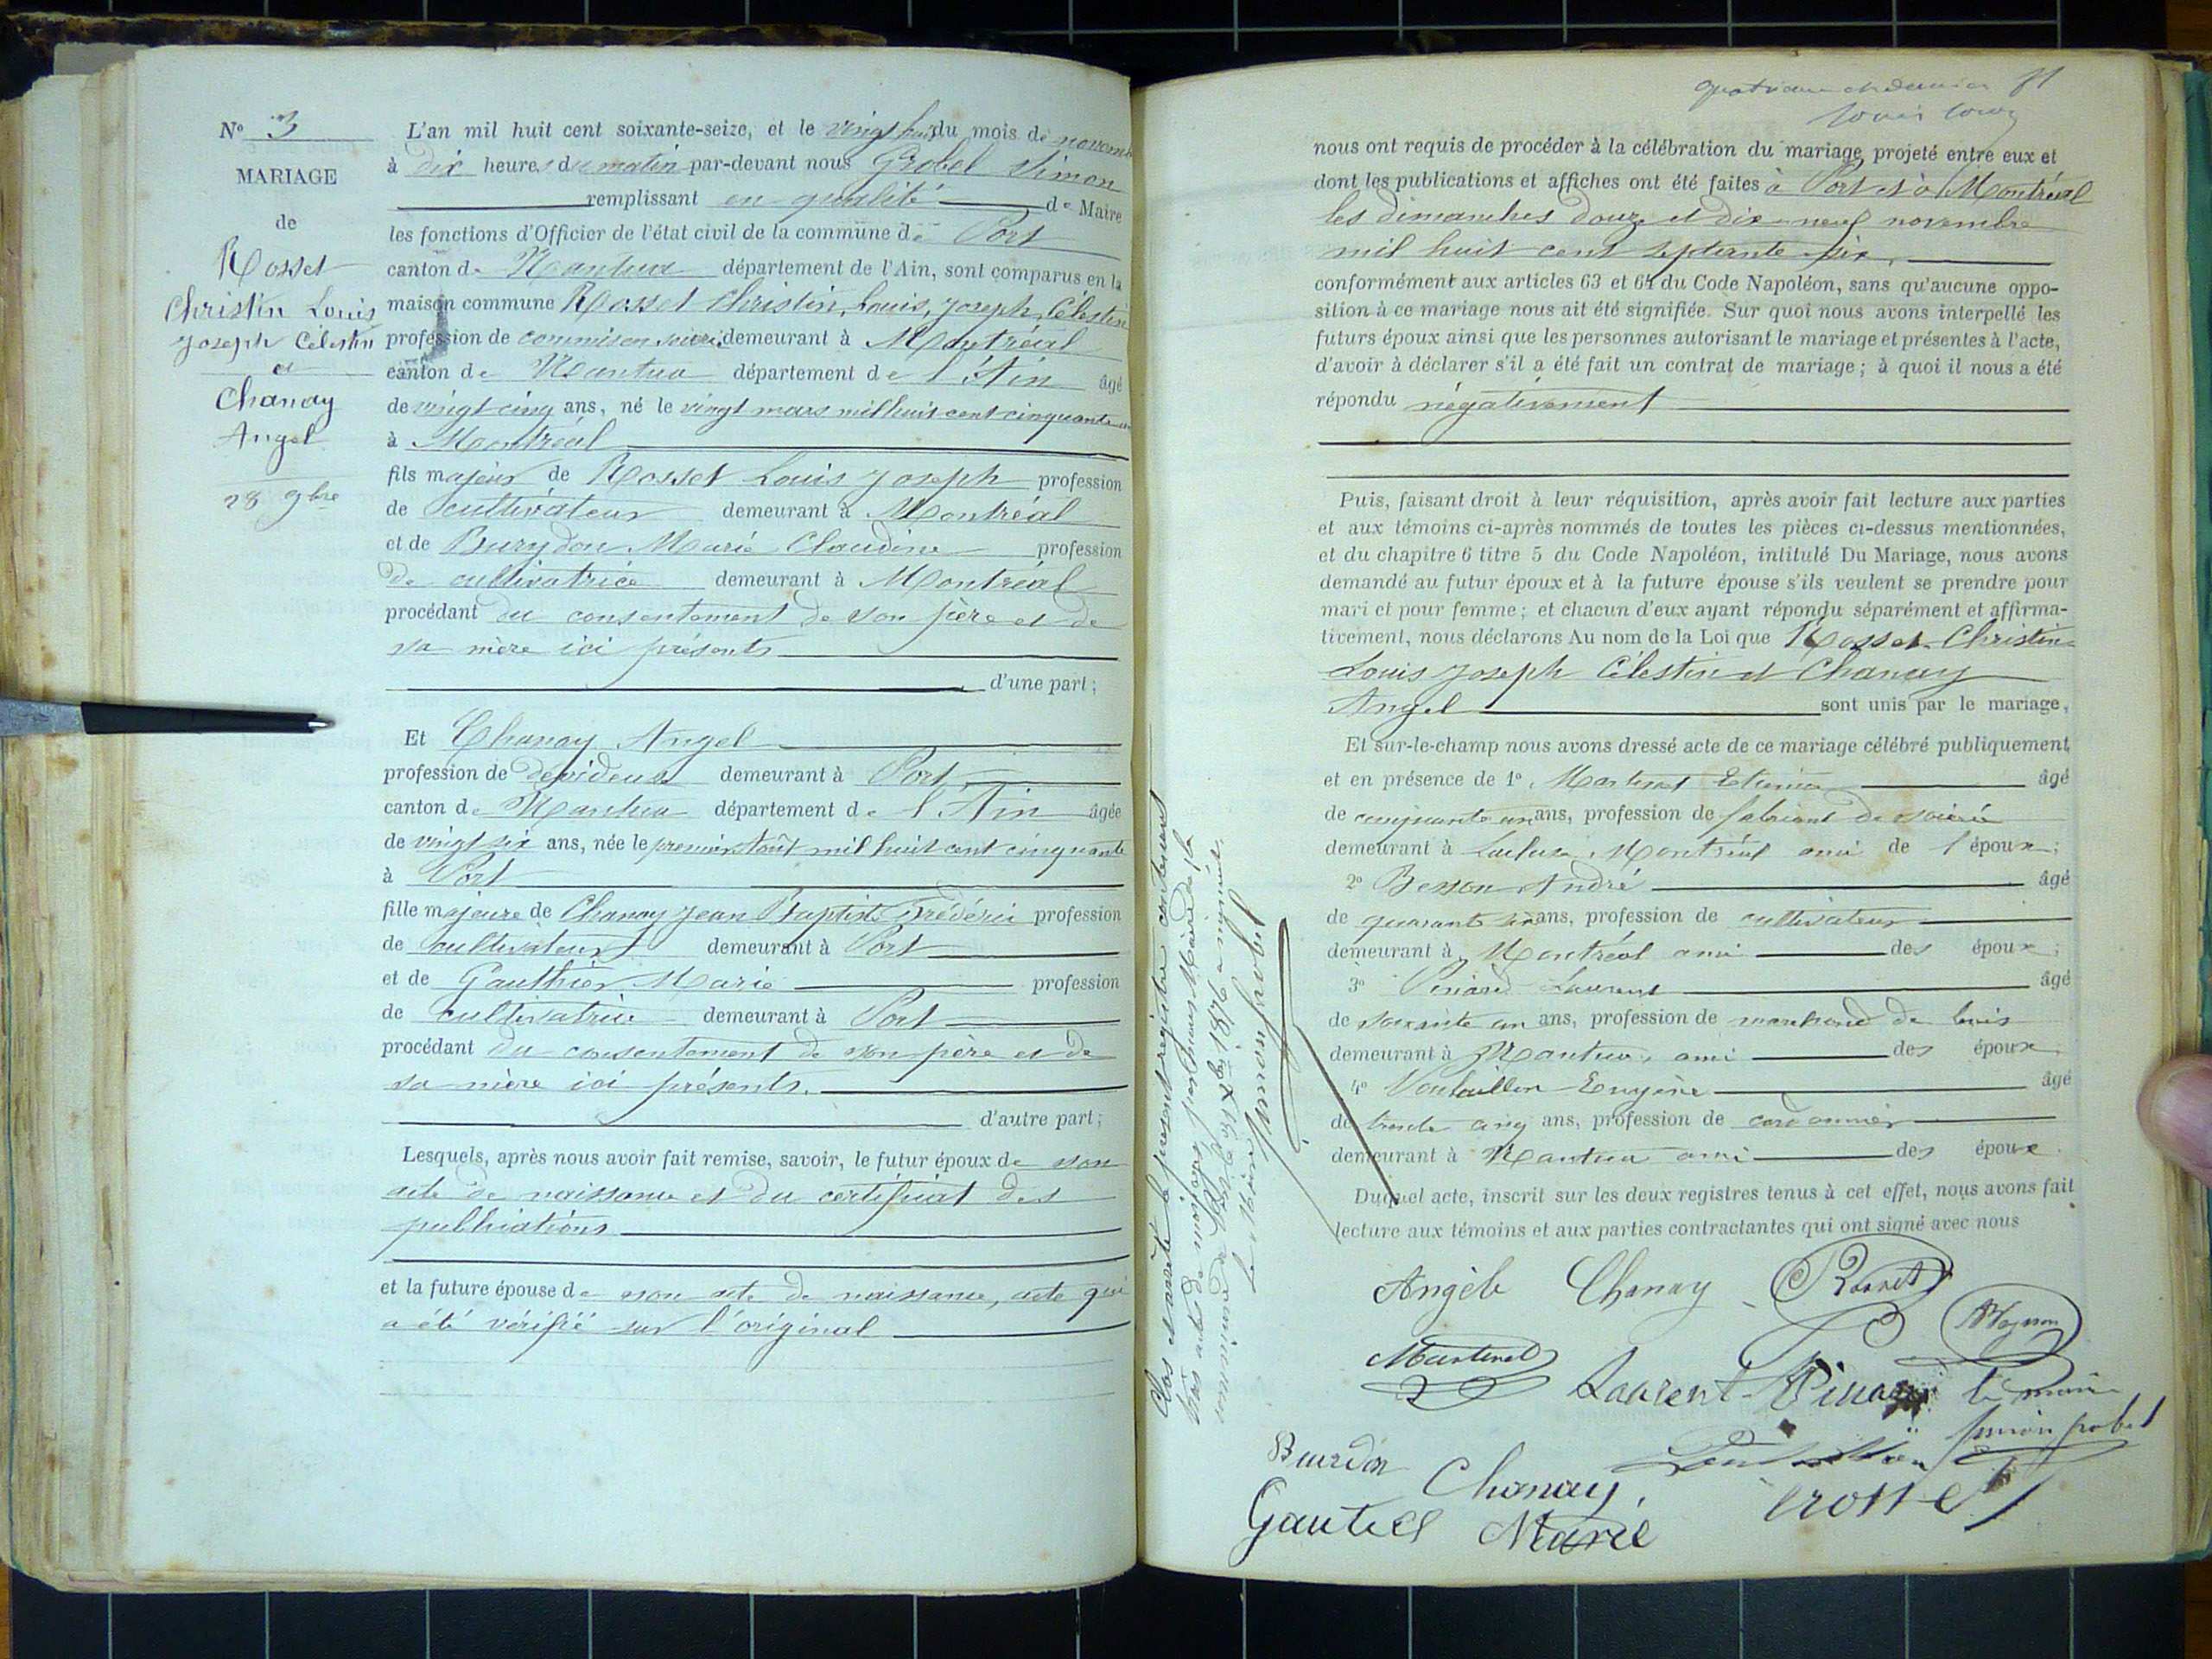 N° 3
MARIAGE
de
Rosset
Christin Louis
Joseph Célestin
et
Chanay
Angel
28 9bre
L'an mil huit cent soixante-seize, et le vingt huit du mois de novembre
à dix heures du matin par-devant nous Grobel Simon
remplissant en qualité de Maire
les fonctions d'Officier de l'état civil de la commune de Port
canton de Nantua département de l'Ain, sont comparus en la
maison commune Rosset Christin, Louis, Joseph, Célestin
profession de commis en soierie demeurant à Montréal
canton de Nantua département de l'Ain âgé
de vingt cinq ans, né le vingt mars mil huit cent cinquante un
à Montréal
fils majeur de Rosset Louis Joseph profession
de cultivateur demeurant à Montréal
et de Burydon Marie Claudine profession
de cultivatrice demeurant à Montréal
procédant du consentement de son père et de
sa mère ici présents
d'une part;
Et Chanay Angel
profession de dévideuse demeurant à Port
canton de Nantua département de l'Ain âgée
de vingt six ans, née le premier Août mil huit cent cinquante
à Port
fille majeure de Chanay Jean Baptiste Frédéric profession
de cultivateur demeurant à Port
et de Gauthier Marie profession
de cultivatrice demeurant à Port
procédant du consentement de son père et de
sa mère ici présents.
d'autre part;
Lesquels, après nous avoir fait remise, savoir, le futur époux de son
acte de naissance et du certificat des
publications
et la future épouse de son acte de naissance, acte qui
a été vérifié sur l'original
Clos et arrêté le présent registre contenant
trois actes de mariages par nous Maire de la
commune de Port le 31 Xbre 1876 a minuit.
Le Maire
Simon grobel
quatrième et dernier
nous ont requis de procéder à la célébration du mariage projeté entre eux et
dont les publications et affiches ont été faites à Port et à Montréal
les dimanches douze et dix-neuf novembre
mil huit cent septante six,
conformément aux articles 63 et 64 du Code Napoléon, sans qu'aucune oppo-
sition à ce mariage nous ait été signifiée. Sur quoi nous avons interpellé les
futurs époux ainsi que les personnes autorisant le mariage et présentes à l'acte,
d'avoir à déclarer s'il a été fait un contrat de mariage; à quoi il nous a été
répondu négativement
Puis, faisant droit à leur réquisition, après avoir fait lecture aux parties
et aux témoins ci-après nommés de toutes les pièces ci-dessus mentionnées,
et du chapitre 6 titre 5 du Code Napoléon, intitulé Du Mariage, nous avons
demandé au futur époux et à la future épouse s'ils veulent se prendre pour
mari et pour femme; et chacun d'eux ayant répondu séparément et affirma-
tivement, nous déclarons Au nom de la Loi que Rosset Christin
Louis Joseph Célestin et Chanay
Angel sont unis par le mariage,
Et sur-le-champ nous avons dressé acte de ce mariage célébré publiquement,
et en présence de 1° Martinet Etienne âgé
de cinquante un ans, profession de fabricant de soierie
demeurant à Montréal ami de l'époux;
2° Besson André âgé
de quarante six ans, profession de cultivateur
demeurant à Montréal ami des époux;
3° Pinard Laurent âgé
de soixante un ans, profession de marchand de bois
demeurant à Nantua, ami des époux
4° Eugène âgé
de trente cinq ans, profession de cordonnier
demeurant à Nantua ami des époux.
Duquel acte, inscrit sur les deux registres tenus à cet effet, nous avons fait
lecture aux témoins et aux parties contractantes qui ont signé avec nous
Angèle Chanay Rosset
Martinet
Laurent Pinard le maire
simon grobel
Burdon Chanay
Gautier Marie rosset